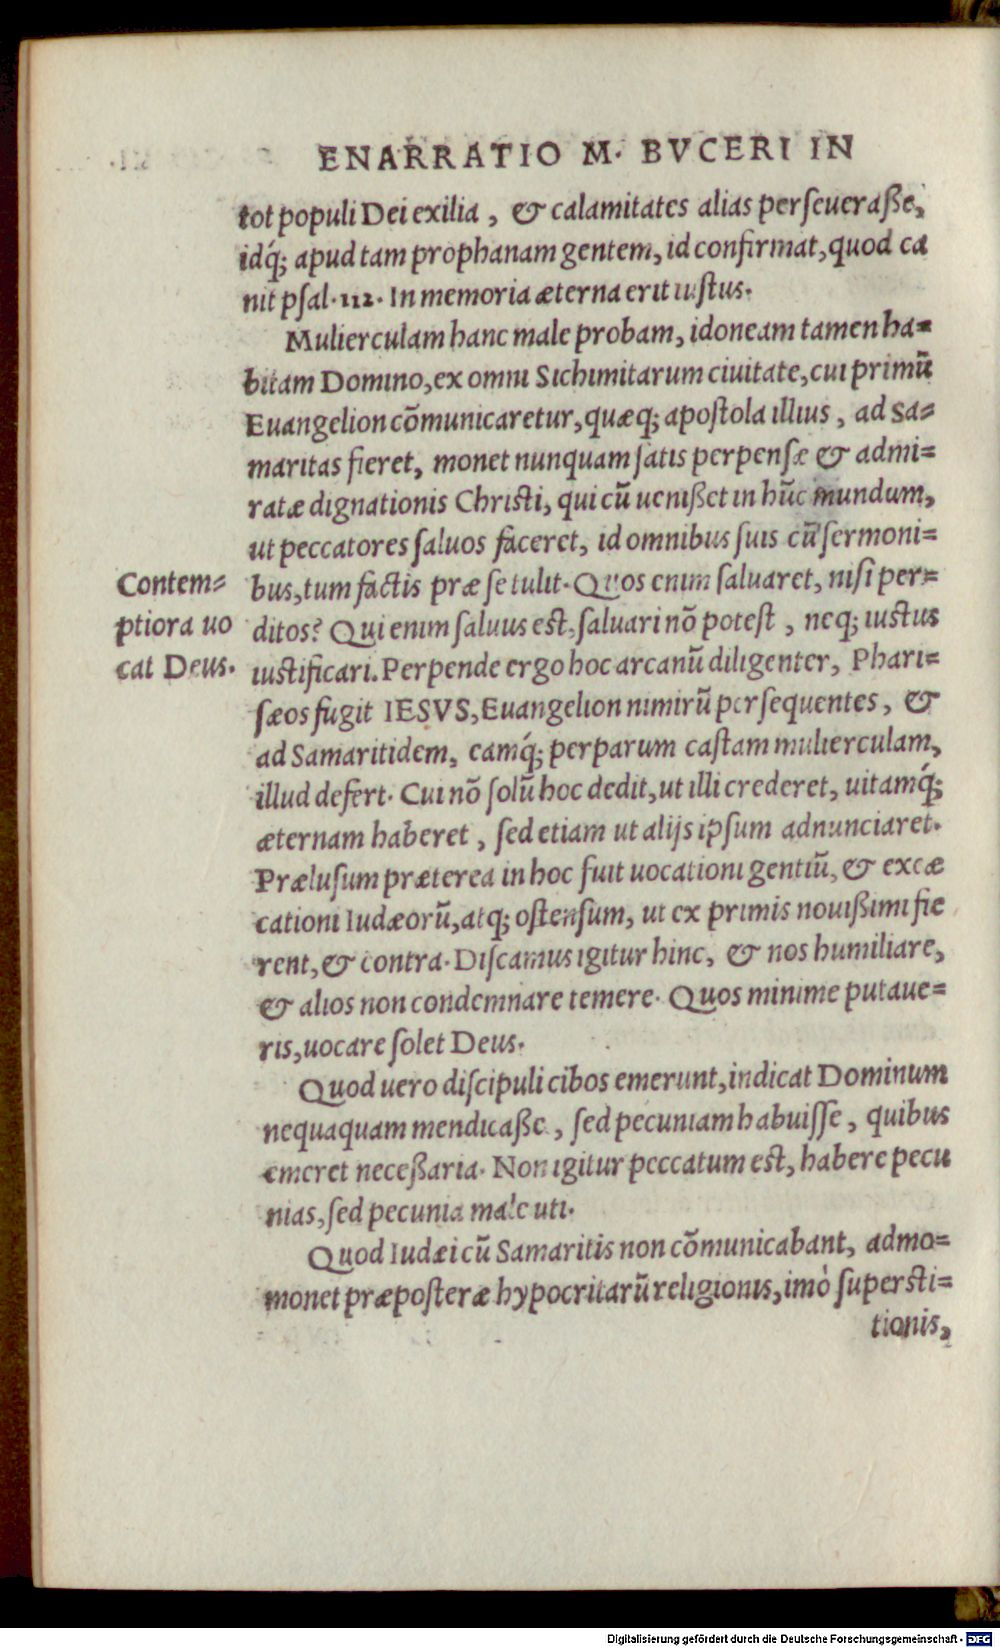 ENARRATIO M. BVCERI IN
tot populi Dei exilia, & calamitates alias perſeueraße,
idq́; apud tam prophanam gentem, id confirmat, quod ca
nit pſal. 112. In memoria æterna erit iuſtus.
Mulierculam hanc male probam, idoneam tamen ha=
bitam Domino, ex omni Sichimitarum ciuitate, cui primũ
Euangelion cõmunicaretur, quæq; apoſtola illius, ad Sa=
maritas fieret, monet nunquam ſatis perpenſæ & admi=
ratæ dignationis Chriſti, qui cũ uenißet in hũc mundum,
ut peccatores ſaluos faceret, id omnibus ſuis cũ ſermoni=
Contem=
ptiora uo
cat Deus.
bus, tum factis præ ſe tulit. Quos enim ſaluaret, niſi per=
ditos? Qui enim ſaluus eſt, ſaluari nõ poteſt, neq; iuſtus
iuſtificari. Perpende ergo hoc arcanũ diligenter, Phari=
ſæos fugit IESVS, Euangelion nimirũ perſequentes, &
ad Samaritidem, eamq́; perparum caſtam mulierculam,
illud defert. Cui nõ ſolũ hoc dedit, ut illi crederet, uitamq́;
æternam haberet, ſed etiam ut alijs ipſum adnunciaret.
Præluſum præterea in hoc fuit uocationi gentiũ, & excæ
cationi Iudæorũ, atq; oſtenſum, ut ex primis nouißimi fie
rent, & contra. Diſcamus igitur hinc, & nos humiliare,
& alios non condemnare temere. Quos minime putaue=
ris, uocare ſolet Deus.
Quod uero diſcipuli cibos emerunt, indicat Dominum
nequaquam mendicaße, ſed pecuniam habuiſſe, quibus
emeret neceßaria. Non igitur peccatum eſt, habere pecu
nias, ſed pecunia male uti.
Quod Iudæi cũ Samaritis non cõmunicabant, admo=
monet præpoſteræ hypocritarũ religionis, imò ſuperſti=
tionis,
Digitalisierung gefördert durch die Deutsche Forschungsgemeinschaft - DFG